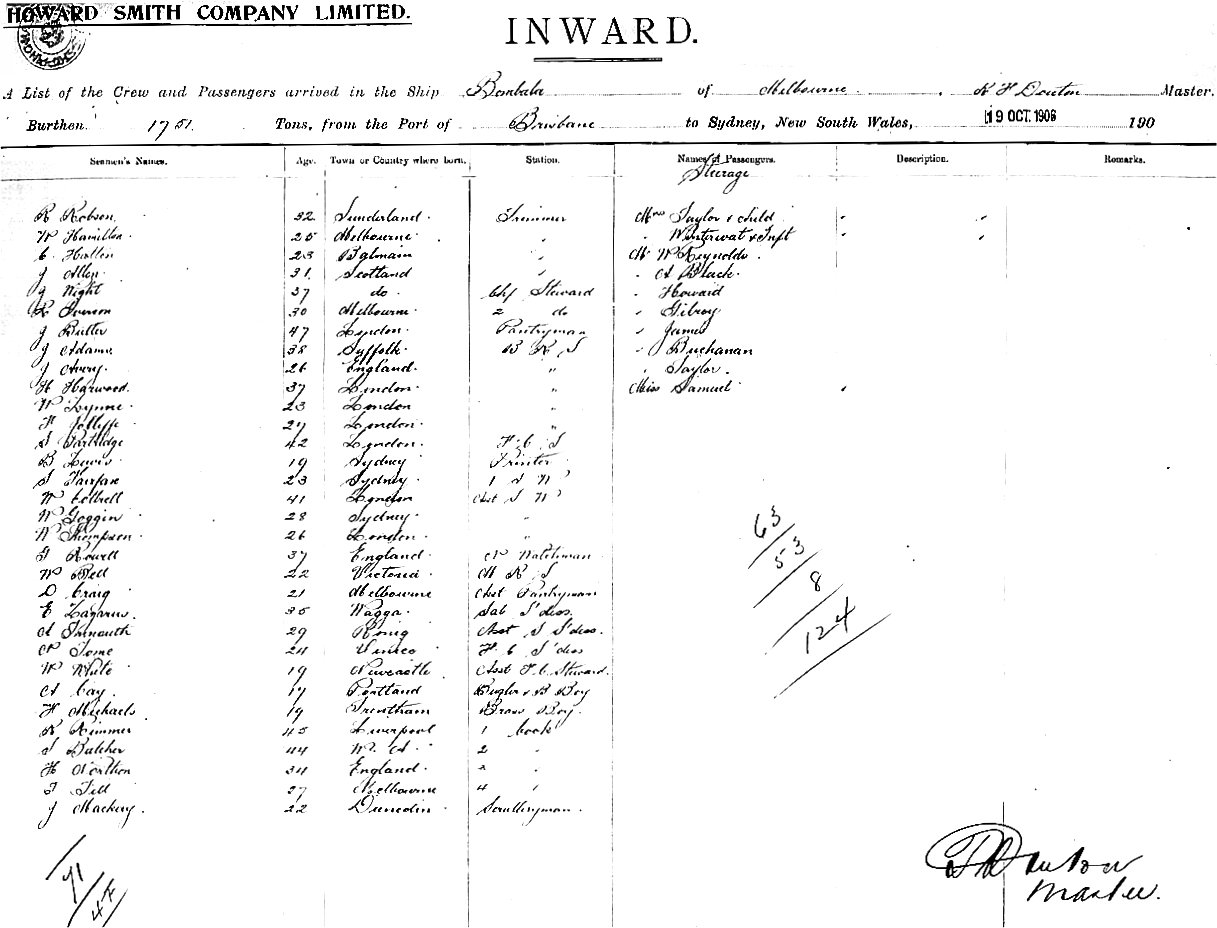 HOWARD SMITH COMPANY LIMITED.
INWARD.
A List of the Crew and Passengers arrived in the Ship Bombala of Melbourne, Master.
Burthen 1751 Tons, from the Port of Brisbane to Sydney, New South Wales, 19 OCT. 1906 190
Seamen's Names. Age. Town or Country where born. Station. Names of Passengers. Description. Remarks.
Steerage
R Robson 32 Sunderland Trimmer Mrs Taylor & child
W Hamilton 25 Melbourne " & Inft
C 23 Balmain " Mr W Reynolds
J Allen 31 Scotland " " A Black
J Night 37 do Chf Steward " Howard
R Iverson 30 Melbourne 2 do " Gilroy
J Butler 47 London Pantryman " James
J Adams 38 Suffolk B R S " Buchanan
J Avery 26 England " " Taylor
H Harwood 37 London " Miss Samuel
W Lynne 23 London "
H Jolliffe 27 London "
S Partridge 42 London F C S
B Lewis 19 Sydney Printer
S Fairfax 23 Sydney 1 S W
W 41 London Asst S W
W Goggin 28 Sydney "
W Thompson 26 London "
Rowell 37 England N Watchman
W Bell 22 Victoria M R S
D Craig 21 Melbourne Asst Pantryman
E Lazarus 35 Wagga Sal S'dess
A 29 Asst S S'dess
24 F C S'dess
W White 19 Newcastle Asst F C Steward
A Cay 17 Portland Bugler & B Boy
H Michaels 19 Trentham Brass Boy
R Rimmer 45 Liverpool 1 Cook
S Butcher 44 W. A 2 "
H 34 England "
Tell 27 Melbourne 4 "
J 22 Dunedin Sculleryman
63
53
8
124
71
Master.